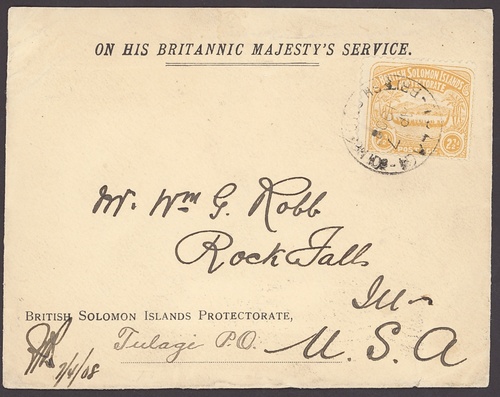 ON HIS BRITANNIC MAJESTY'S SERVICE.
BRITISH SOLOMON ISLANDS
PROTECTORATE
2½
Mr. Wm G. Robb
Rock Falls
Ills
BRITISH SOLOMON ISLANDS PROTECTORATE,
Tulagi P.O.
U. S. A
7/4/08